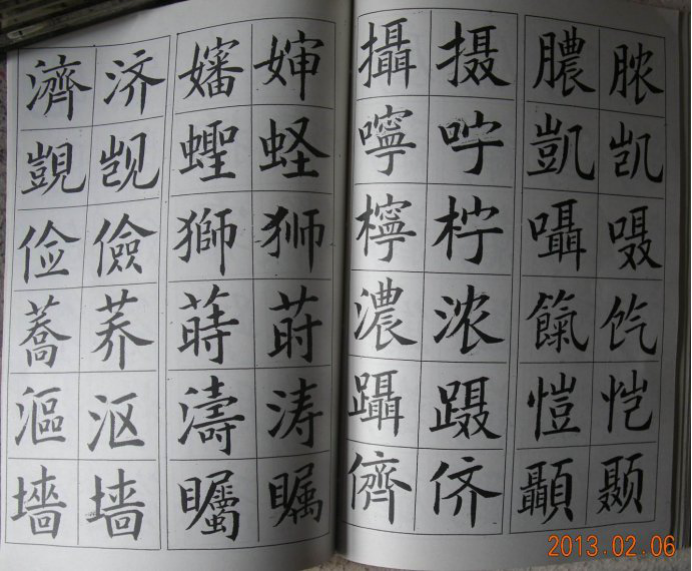 濟 济 嬸 婶
覬 觊 蟶 蛏
俭 儉 獅 狮
蕎 荞 蒔 莳
漚 沤 濤 涛
墻 墙 矚 瞩
攝 摄 膿 脓
嚀 咛 凱 凯
檸 柠 囁 嗫
濃 浓 餼 饩
躡 蹑 愷 恺
儕 侪 顳 颞
2013.02.06